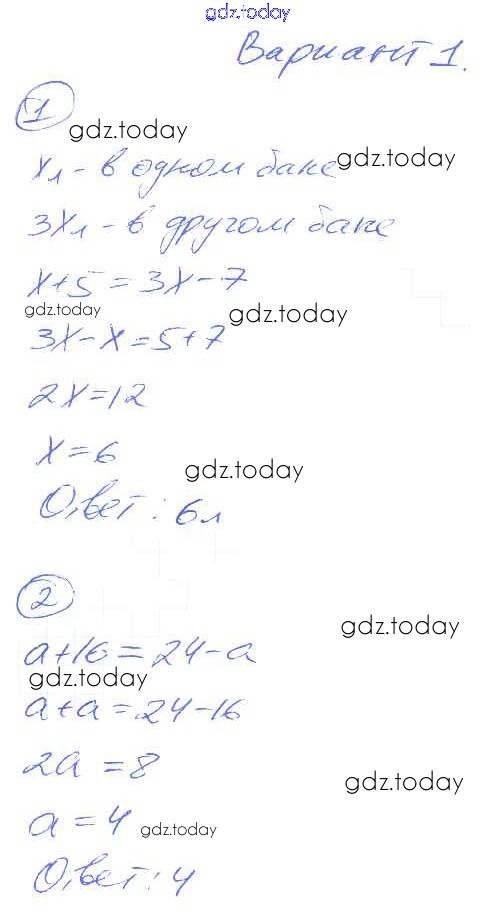 gdz.today
Вариант 1.
1
gdz.today
xл - в одном баке gdz.today
3xл - в другом баке
x+5=3x-7
gdz.today gdz.today
3x-x=5+7
2x=12
x=6
gdz.today
Ответ: 6л
2
gdz.today
a+16=24-a
gdz.today
a+a=24-16
2a=8
gdz.today
a=4 gdz.today
Ответ: 4